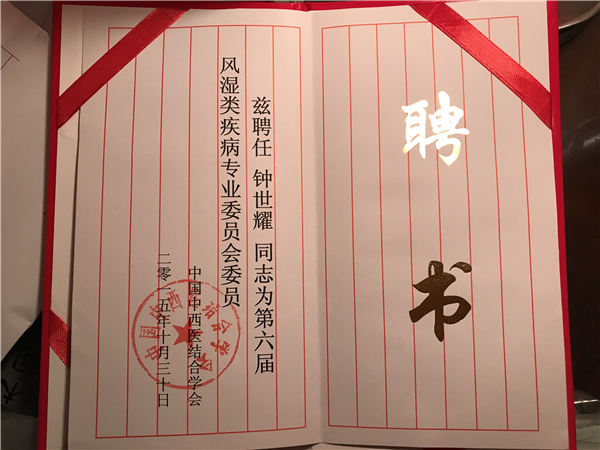 聘书
兹聘任 钟世耀 同志为第六届
风湿类疾病专业委员会委员
中国中西医结合学会
二零一五年十月三十日